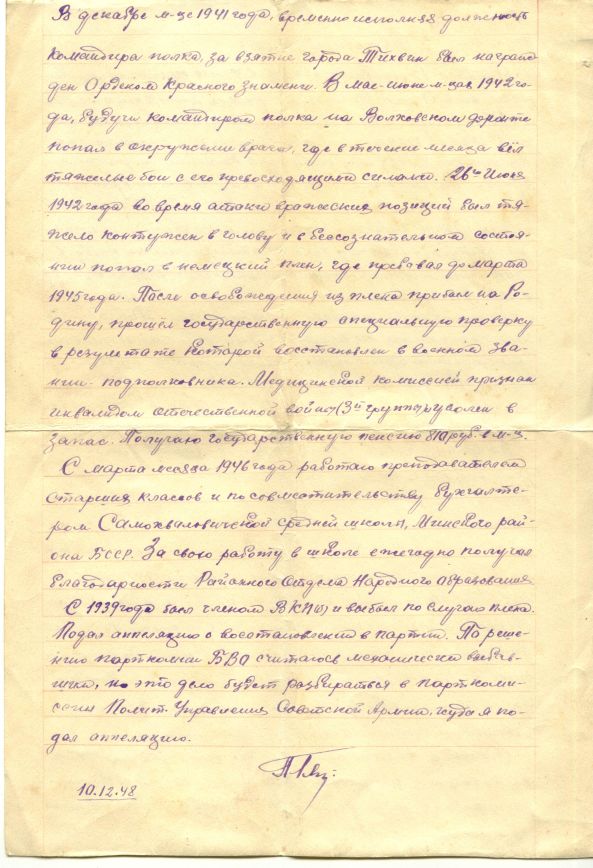 В декабре м-це 1941 года, временно исполняя должность
командира полка, за взятие города Тихвин был награж-
ден Орденом Красного Знамени. В мае-июне м-цах 1942 го-
да, будучи командиром полка на Волховском фронте
попал в окружение врага, где в течение месяца вёл
тяжелые бои с его превосходящими силами. 26го Июня
1942 года во время атаки вражеских позиций был тя-
жело контужен в голову и в бессознательном состоя-
нии попал в немецкий плен, где пробыл до марта
1945 года. После освобождения из плена прибыл на Ро-
дину, прошёл государственную специальную проверку
в результате которой восстановлен в военном зва-
нии подполковника. Медицинской комиссией признан
инвалидом отечественной войны (3й группы) уволен в
запас. Получаю государственную пенсию руб. в м-ц.
С марта месяца 1946 года работаю преподавателем
старших классов и по совместительству бухгалте-
ром Самохваловичской средней школы, Минского рай-
она БССР. За свою работу в школе ежегодно получаю
благодарности Районного Отдела Народного образования
С 1939 года был членом ВКП(б) и выбыл по случаю плена.
Подал аппеляцию о востановлении в партии. По реше-
нию парткомиссии БВО считаюсь механически выбыв-
шим, но это дело будет разбираться в парткоми-
ссии Полит. Управления Советской Армии, куда я по-
дал аппеляцию.
10.12.48